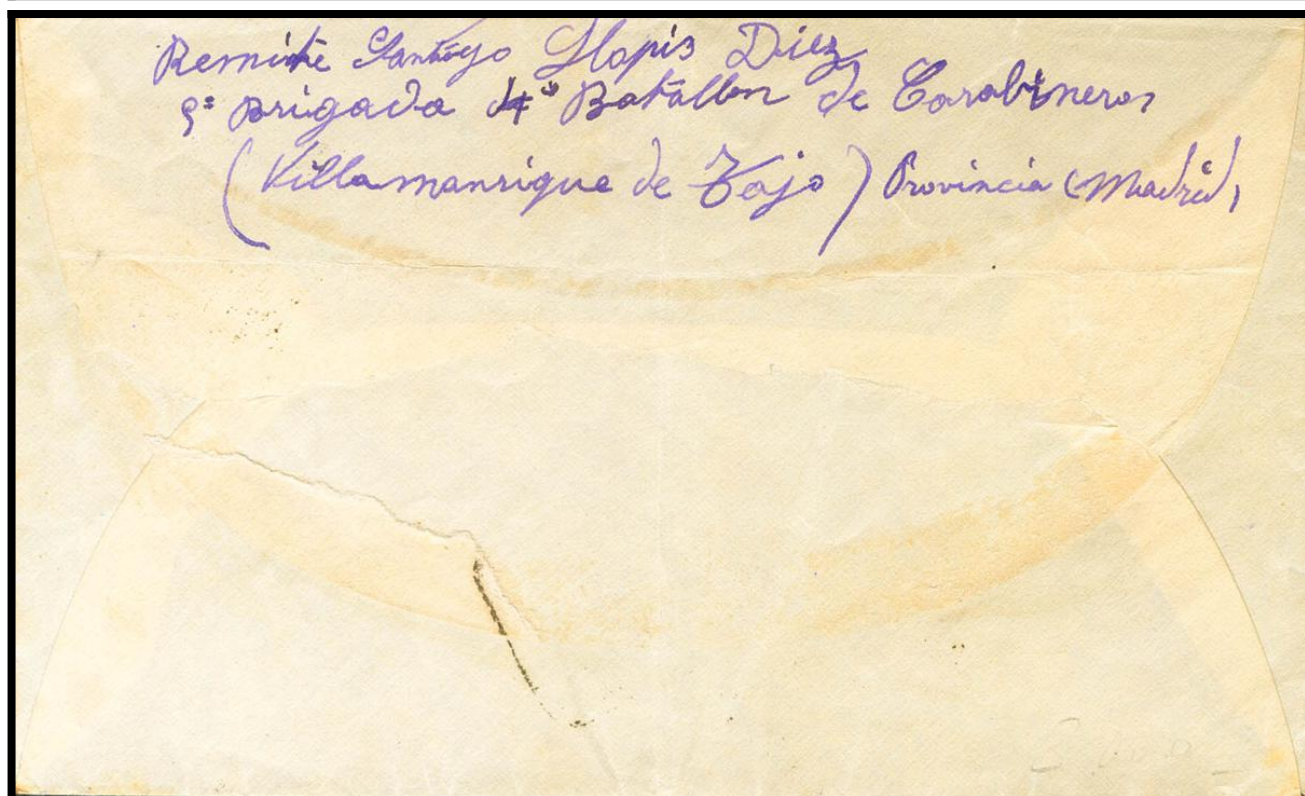 Remite Santiago Llopis Diez
9ª Brigada 4º Batallon de Carabineros
(Villamanrique de Tajo) Provincia (Madrid)